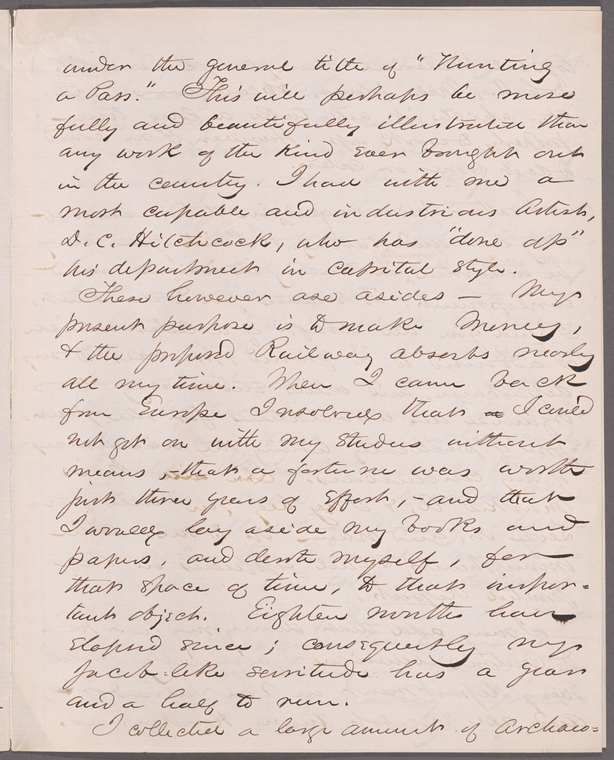 under the general title of "Hunting
a Pass." This will perhaps be more
fully and beautifully illustrated than
any work of the kind ever brought out
in the country. I had with me a
most capable and industrious Artist,
D. C. Hitchcock, who has "done up"
his department in capital style.
These however are asides — My
present purpose is to make Money,
& the proposed Railway absorbs nearly
all my time. When I came back
from Europe I resolved that I could
not get on with my studies without
means, - that a fortune was worth
just three years of effort, - and that
I would lay aside my books and
papers, and devote myself, for
that space of time, to that impor-
tant object. Eighteen months have
elapsed since; consequently my
Jacob-like servitude has a year
and a half to run.
I collected a large amount of Archaeo=